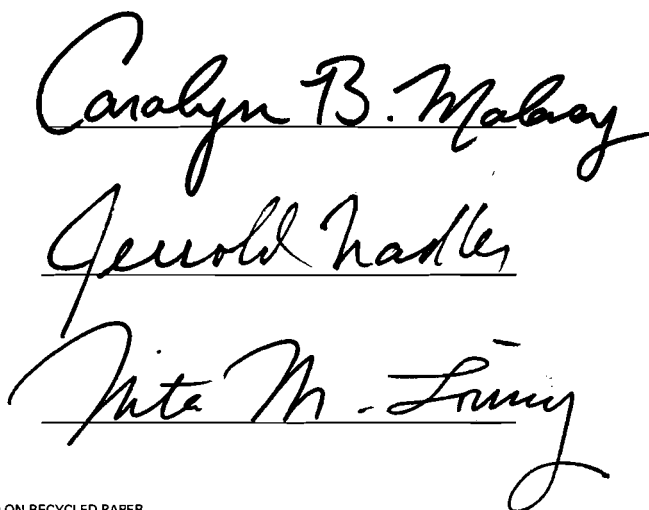 Carolyn B. Maloney
Jerrold Nadler
Nita M. Lowey
ON RECYCLED PAPER